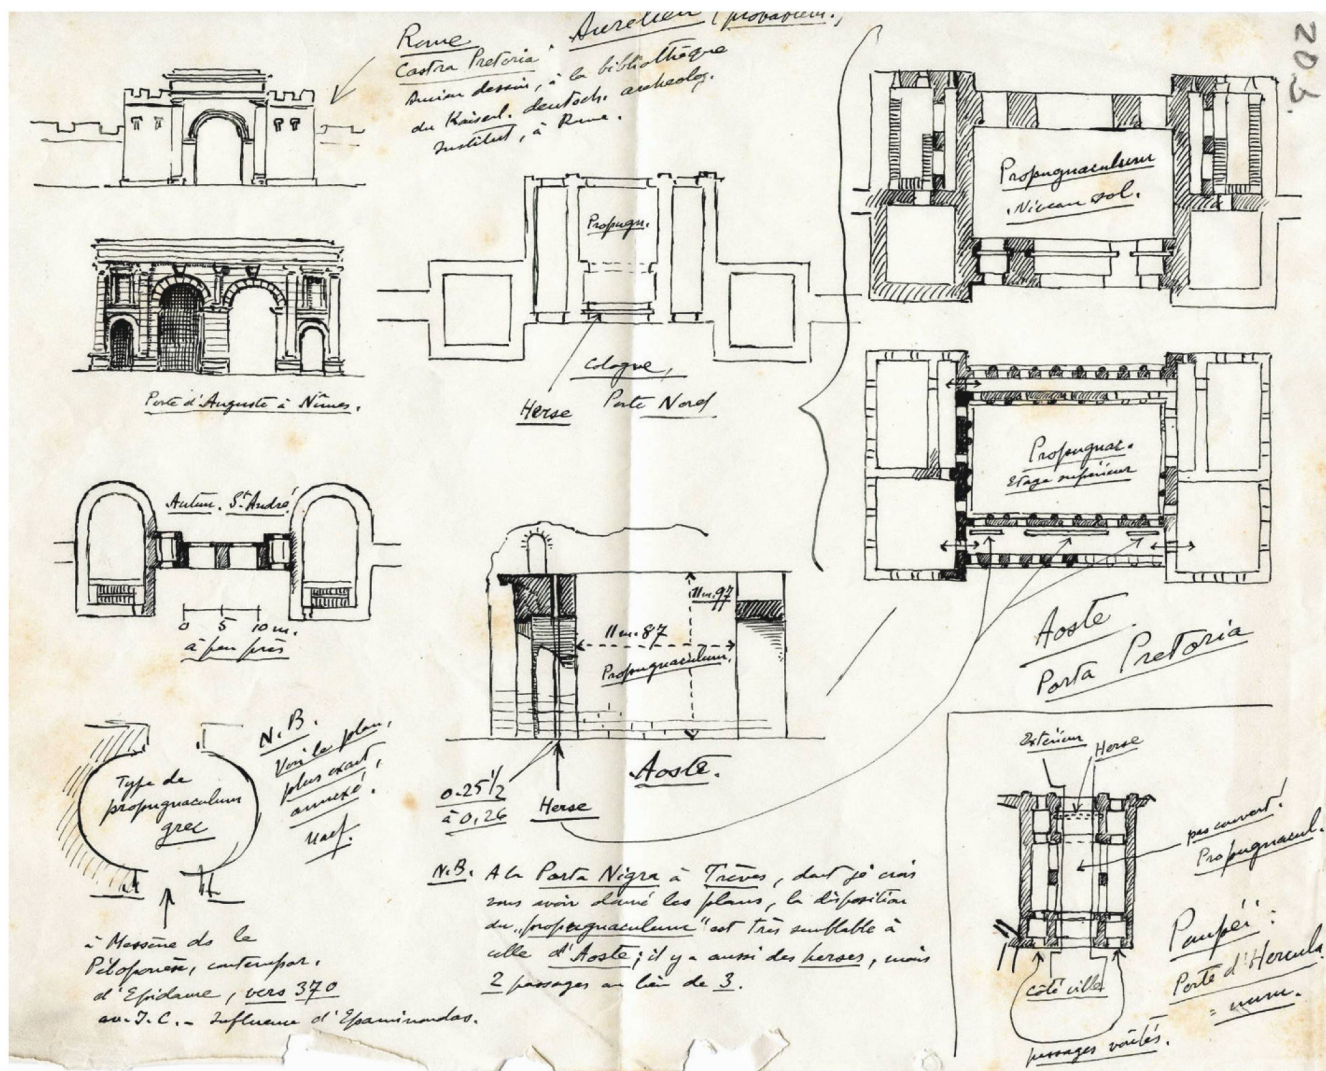 Rome
Castra Pretoria.
Aurélien (probablem.)
Ancien dessin, à la bibliothèque
du Kaiserl. deutsch. archeolog.
Institut, à Rome.
20.b.
Porte d'Auguste à Nîmes.
Propugn.
Herse
Cologne,
Porte Nord
Propugnaculum
Niveau sol.
Propugnac.
Etage supérieur
Aoste
Porta Pretoria
Autun. St André
0 5 10 m.
à peu près
11 m. 97
11 m. 87
Propugnaculum.
Aoste.
0.25 1/2
à 0,26
Herse
Type de
propugnaculum
grec
N.B.
Voir le plan,
plus exact
annexé!
Naef.
à Messène ds le
Péloponèse, contempor.
d'Epidaure, vers 370
av. J. C. - Influence d'Epaminondas.
N.B. A la Porta Nigra à Trèves, dont je crois
vous avoir donné les plans, la disposition
du "propugnaculum" est très semblable à
celle d'Aoste; il y a aussi des herses, mais
2 passages au lieu de 3.
Extérieur
Herse
pas couvert!
Propugnacul.
Pompéï:
Porte d'Hercula
= num.
Côté ville
passages voûtés.